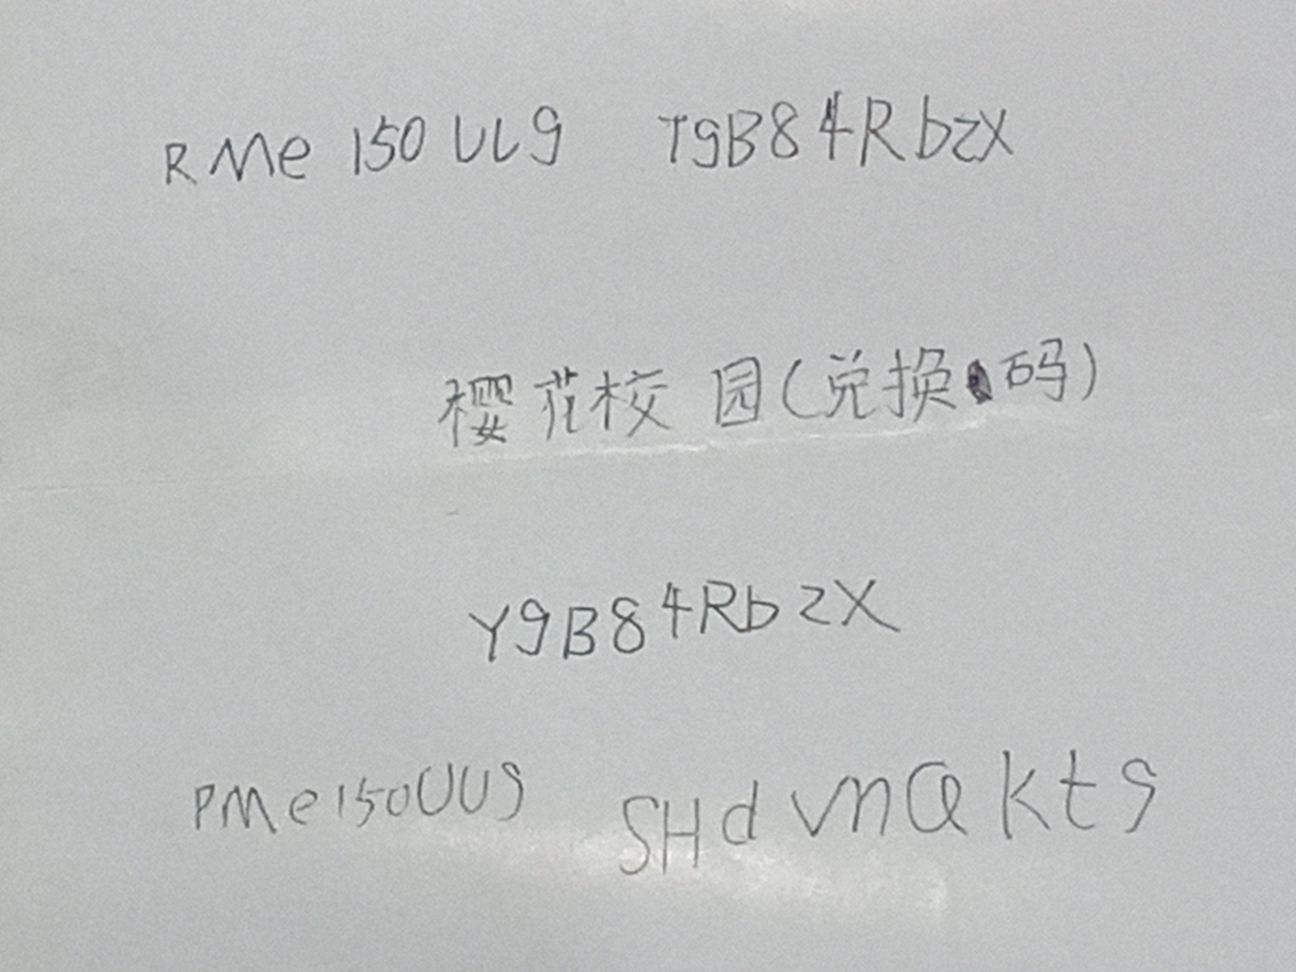 RMe150UU9 T9B84RbzX
樱花校园(兑换码)
Y9B84RbzX
PMe150UU9 SHdvnakt9